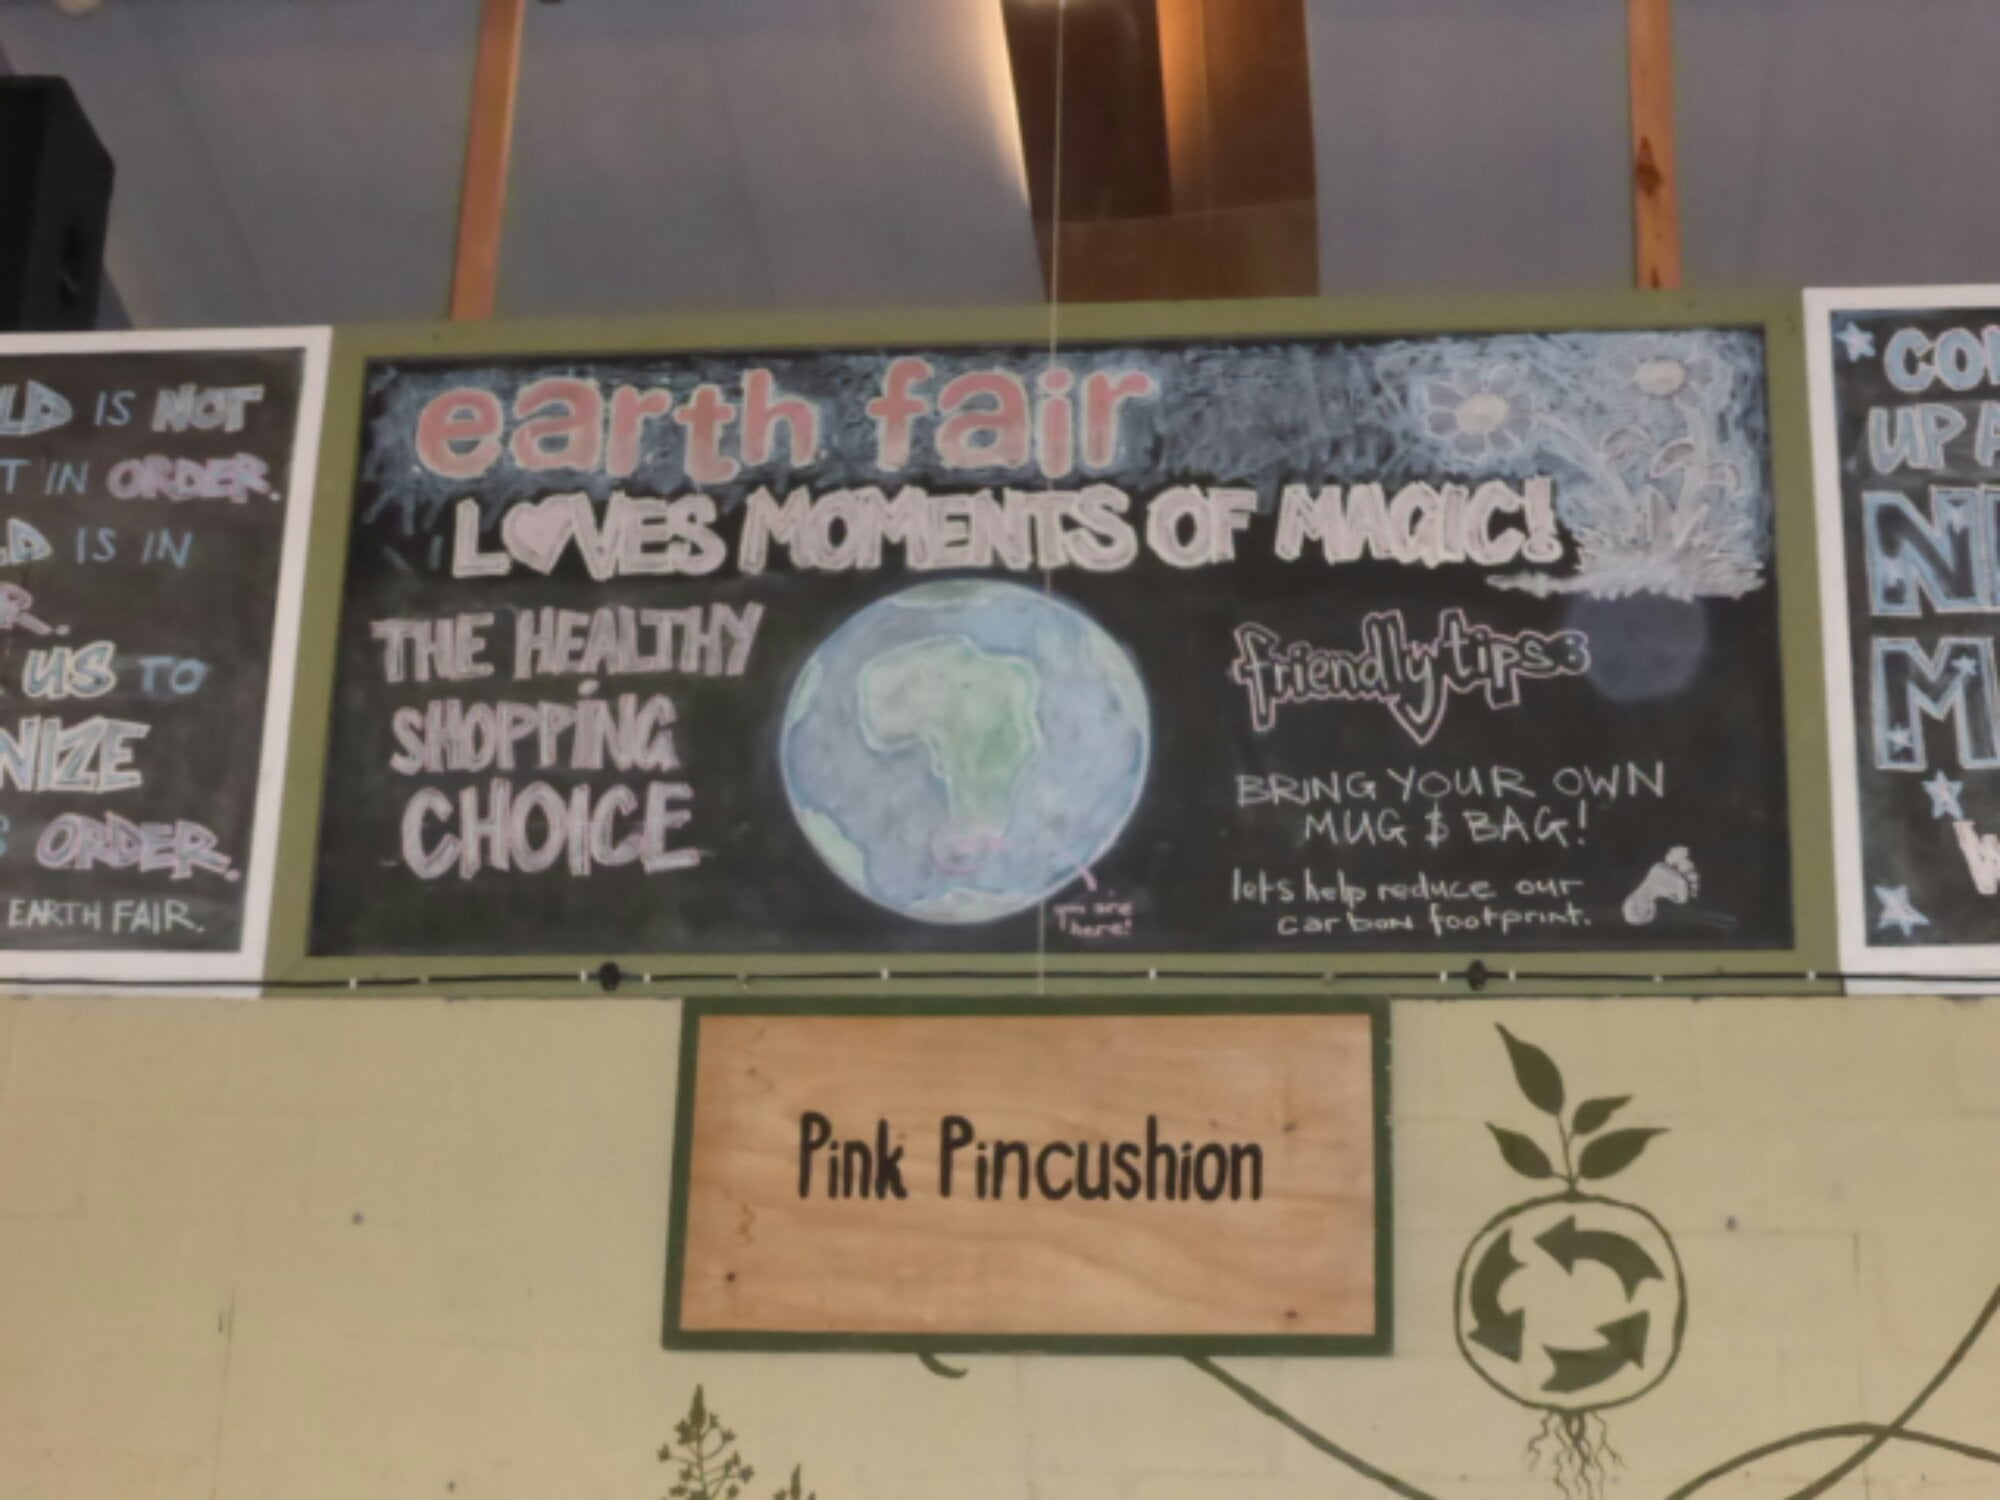 LD IS NOT
T IN ORDER.
LD IS IN
R.
US TO
NIZE
ORDER.
EARTH FAIR.
earth fair
LOVES MOMENTS OF MAGIC!
THE HEALTHY
SHOPPING
CHOICE
you are
here!
friendly tips:
BRING YOUR OWN
MUG & BAG!
lets help reduce our
carbon footprint.
UP
Pink Pincushion